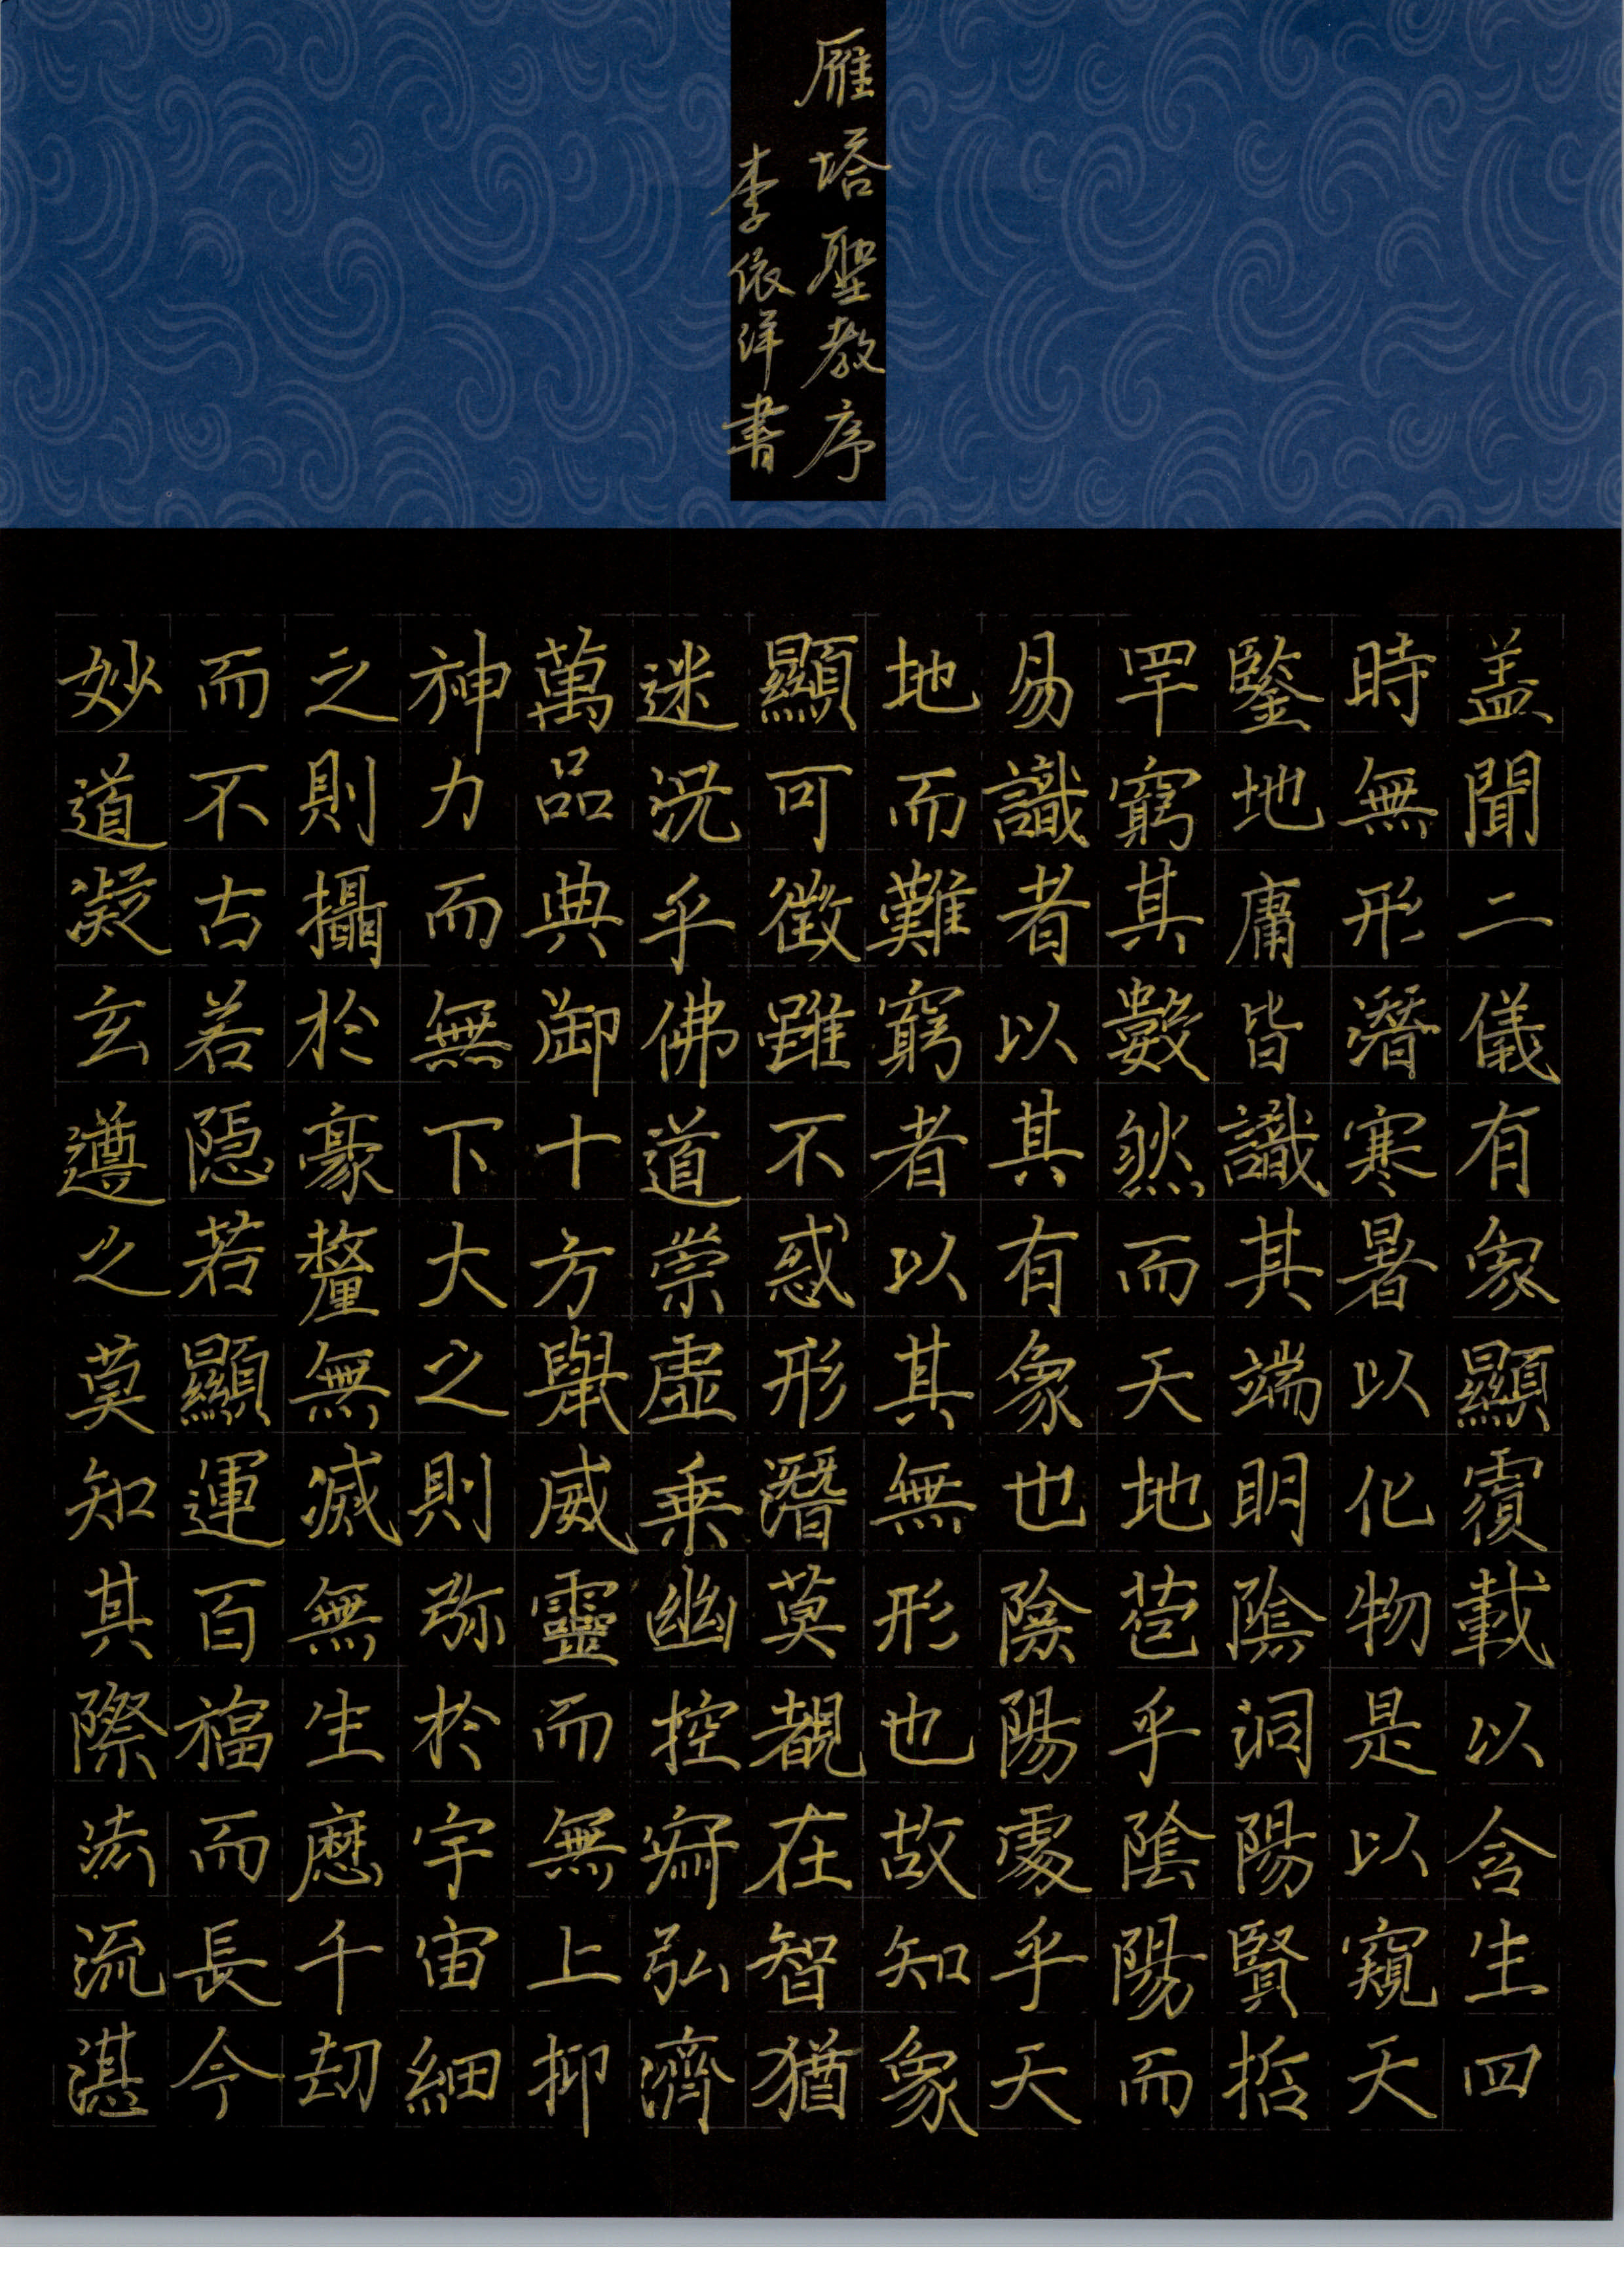 雁塔聖教序
李依洋書
盖聞二儀有象顯覆載以含生四
時無形潛寒暑以化物是以窺天
鑒地庸皆識其端明陰洞陽賢哲
罕窮其數然而天地苞乎陰陽而
易識者以其有象也陰陽處乎天
地而難窮者以其無形也故知象
顯可徵雖不惑形潛莫覩在智猶
迷況乎佛道崇虛乗幽控寂弘濟
萬品典御十方舉威靈而無上抑
神力而無下大之則弥於宇宙細
之則攝於豪釐無滅無生歷千劫
而不古若隱若顯運百福而長今
妙道凝玄遵之莫知其際法流湛